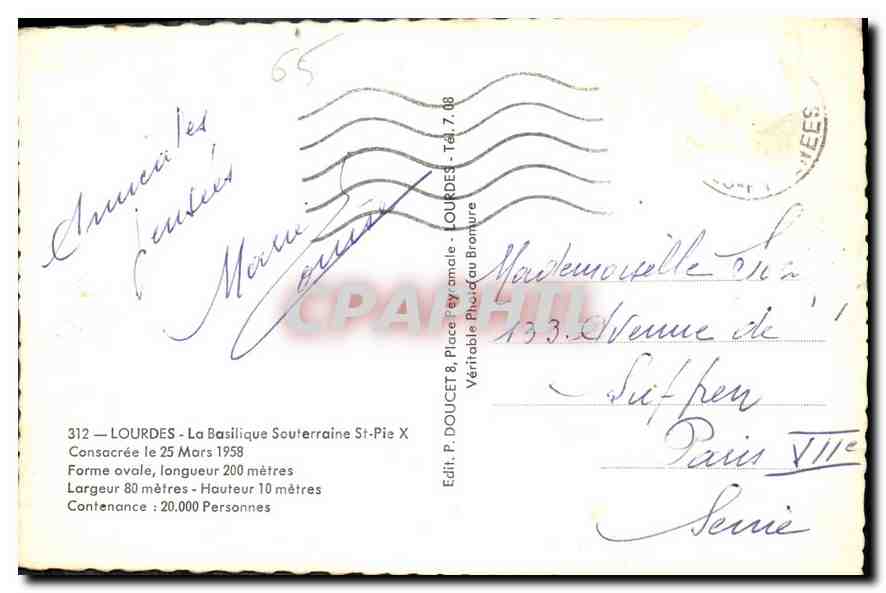 65
Amicales
pensées
Marie
Louise
312 — LOURDES - La Basilique Souterraine St-Pie X
Consacrée le 25 Mars 1958
Forme ovale, longueur 200 mètres
Largeur 80 mètres - Hauteur 10 mètres
Contenance : 20.000 Personnes
Edit. P. DOUCET 8, Place Peyramale - LOURDES - Tél. 7.08
Véritable Photo au Bromure
Mademoiselle
133. Avenue de
Suffren
Paris VIIe
Seine
CPAPHIL